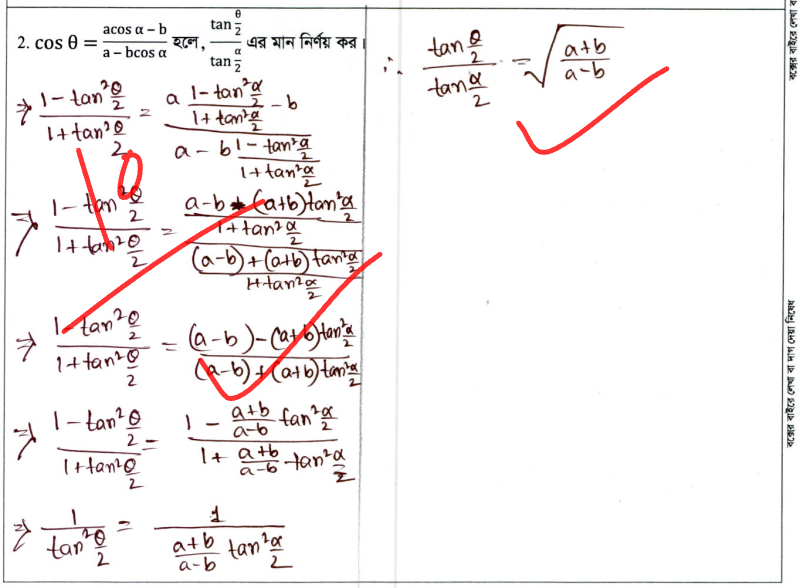 2. cos θ = (acos α – b)/(a – bcos α) হলে, (tan θ/2)/(tan α/2) এর মান নির্ণয় কর।
⇒ (1 - tan²θ/2)/(1 + tan²θ/2) = (a (1 - tan²α/2)/(1 + tan²α/2) - b)/(a - b (1 - tan²α/2)/(1 + tan²α/2))
10
⇒ (1 - tan²θ/2)/(1 + tan²θ/2) = ((a-b - (a+b)tan²α/2)/(1 + tan²α/2))/(((a-b) + (a+b)tan²α/2)/(1 + tan²α/2))
⇒ (1 - tan²θ/2)/(1 + tan²θ/2) = ((a-b) - (a+b)tan²α/2)/((a-b) + (a+b)tan²α/2)
⇒ (1 - tan²θ/2)/(1 + tan²θ/2) = (1 - (a+b)/(a-b) tan²α/2)/(1 + (a+b)/(a-b) tan²α/2)
⇒ 1/(tan²θ/2) = 1/((a+b)/(a-b) tan²α/2)
∴ (tan θ/2)/(tan α/2) = √((a+b)/(a-b))
বক্সের বাইরে লেখা বা দাগ দেয়া নিষেধ
বক্সের বাইরে লেখা ব